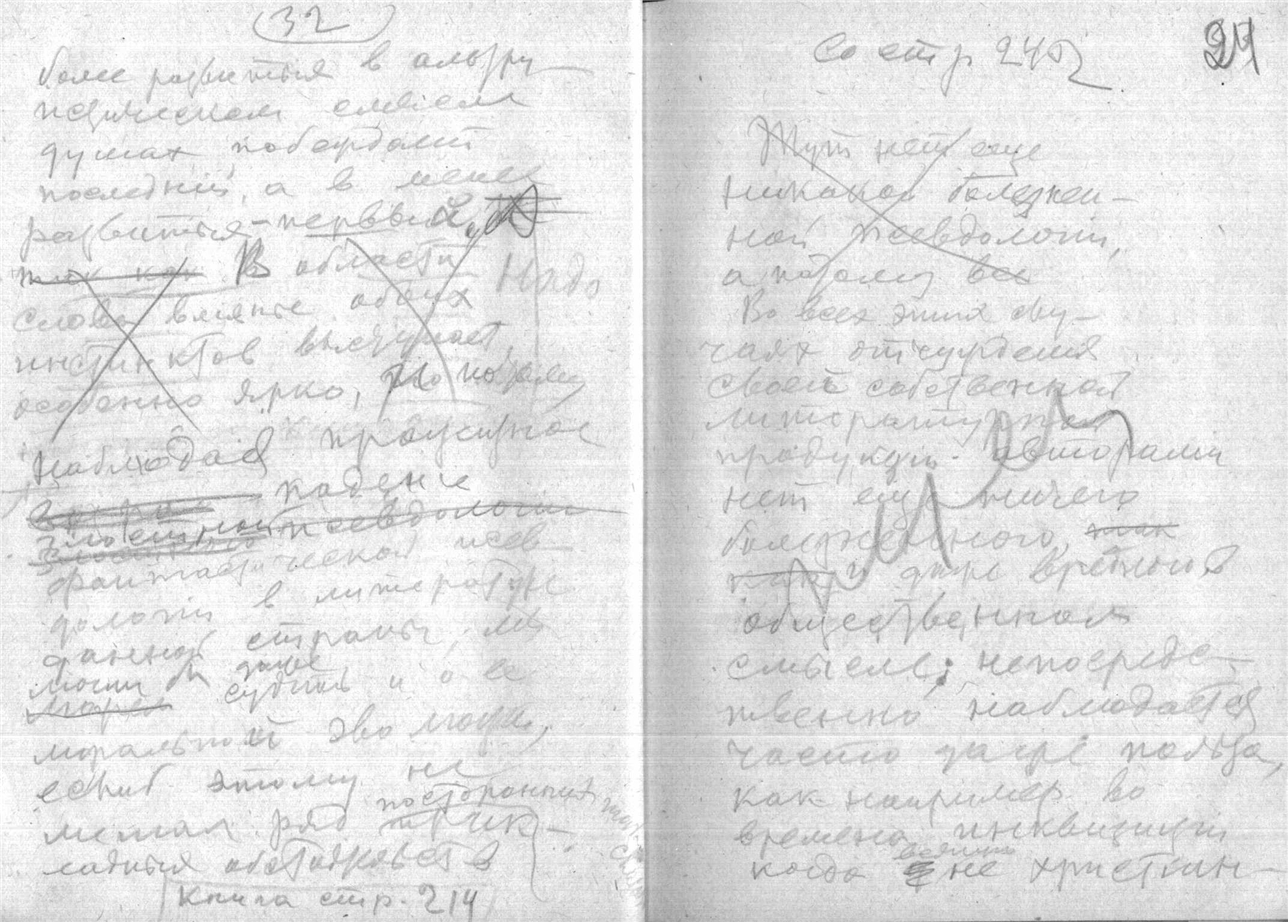 32
более развитыя в альтру-
истическом смысле
душах побеждает
последний, а в менее
развитыя - первый,
так как В области Надо
слова влияние обоих
инстинктов выступает
особенно ярко, но потому
Наблюдая
падение
псевдологии
фантастической псев-
дологии в литературе
данной страны, мы
могли бы даже
судить и о ее
моральной эволюции,
еслиб этому не
мешал ряд посторонних
обстоятельств
Книга стр. 214
Со стр. 245
Тут нет еще
никакой болезнен-
ной псевдологии,
а потому все
Во всех этих слу-
чаях отчуждения
своей собственной
литературной
продукции авторами
нет еще ничего
болезненного, так
как и даже вреднаго в
общественном
смысле; непосредс-
твенно наблюдается
часто даже польза,
как например во
времена инквизиции
когда не христиан-